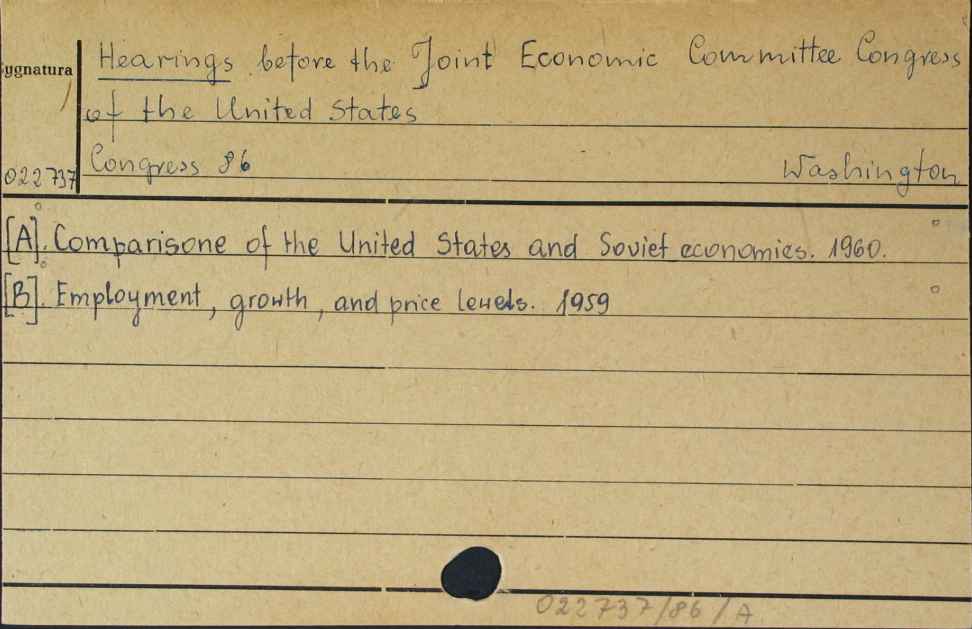 Hearings before the Joint Economic Committee Congress
ygnatura
of the United States
Congress 86 Washington
022737
[A]. Comparisone of the United States and Soviet economics. 1960.
[B]. Employment, growth, and price levels. 1959
022737/86/A